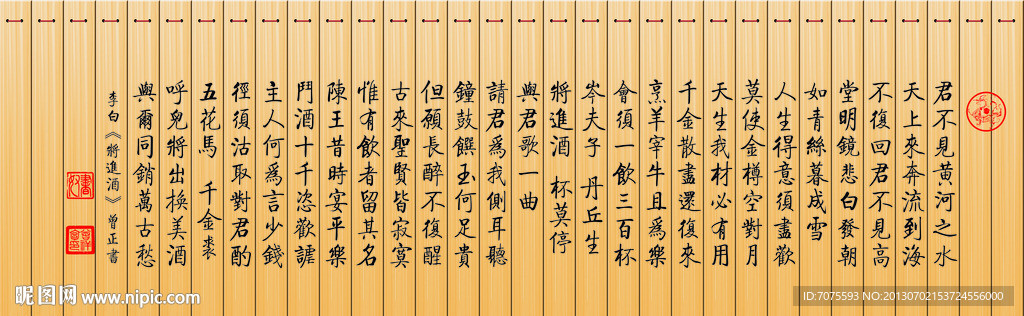 君不見黃河之水
天上來奔流到海
不復回君不見高
堂明鏡悲白發朝
如青絲暮成雪
人生得意須盡歡
莫使金樽空對月
天生我材必有用
千金散盡還復來
烹羊宰牛且為樂
會須一飲三百杯
岑夫子 丹丘生
將進酒 杯莫停
與君歌一曲
請君為我側耳聽
鐘鼓饌玉何足貴
但願長醉不復醒
古來聖賢皆寂寞
惟有飲者留其名
陳王昔時宴平樂
鬥酒十千恣歡謔
主人何為言少錢
徑須沽取對君酌
五花馬 千金裘
呼兒將出換美酒
與爾同銷萬古愁
李白《將進酒》曾正書
昵图网 www.nipic.com
ID:7075593 NO:20130702153724556000